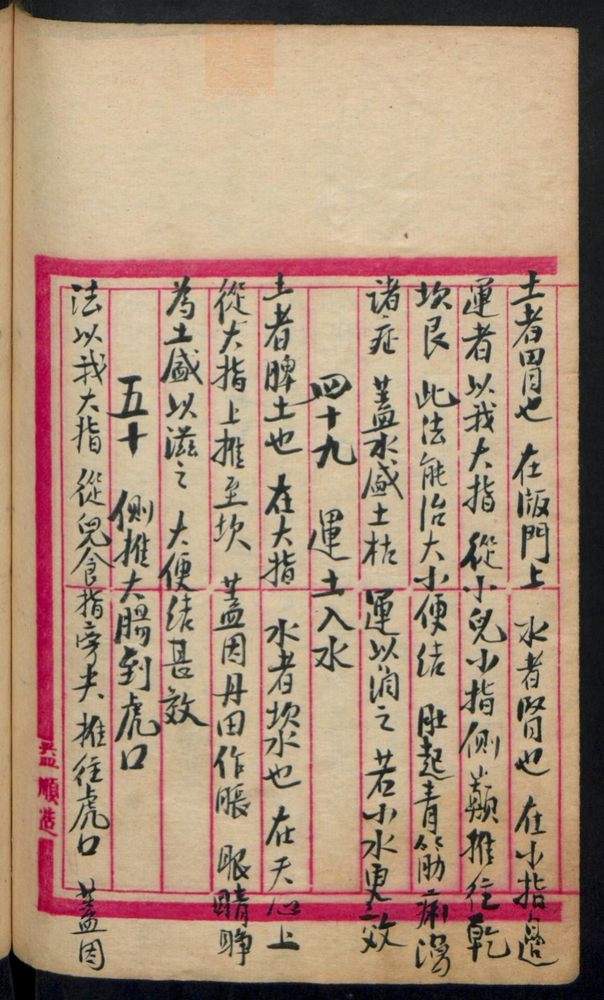 土者胃也 在版門上 水者腎也 在小指邊
運者以我大指 從小兒小指側巔推往乾
坎艮 此法能治大小便结 肚起青筋 痢瀉
諸症 盖水盛土枯 運以润之 若小水更效
四十九 運土入水
土者脾土也 在大指 水者坎水也 在天心上
從大指上推至坎 盖因丹田作脹 眼睛睁
為土盛以滋之 大便结甚效
五十 側推大腸到虎口
法以我大指 從兒食指旁尖 推往虎口 盖因
益順造